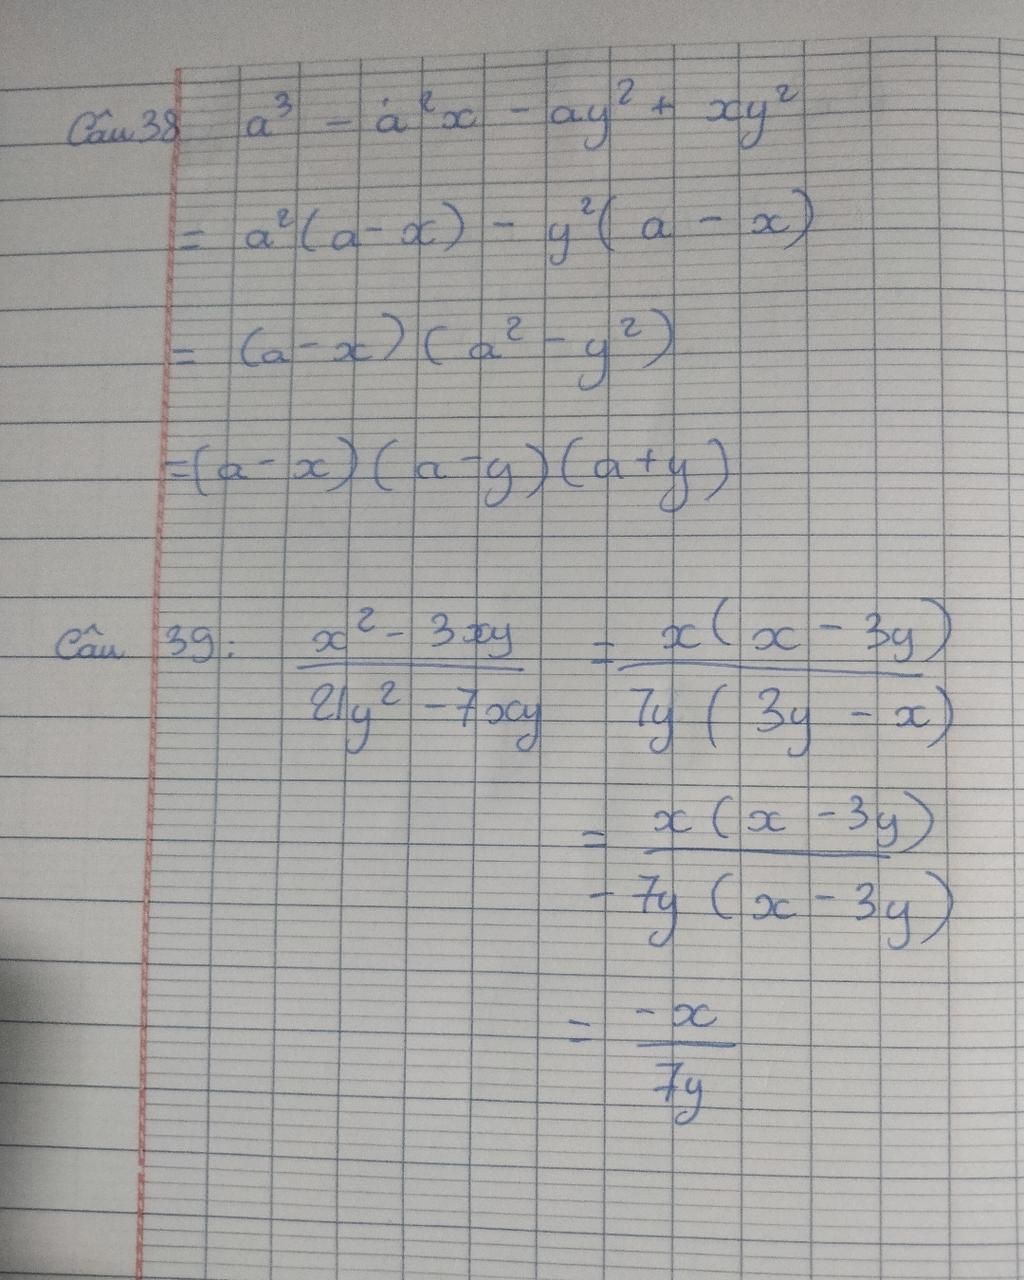 Câu 38 a³ - a²x - ay² + xy²
= a²(a - x) - y²(a - x)
= (a - x)(a² - y²)
= (a - x)(a - y)(a + y)
Câu 39: \frac{x² - 3xy}{21y² - 7xy} = \frac{x(x - 3y)}{7y(3y - x)}
= \frac{x(x - 3y)}{-7y(x - 3y)}
= \frac{-x}{7y}